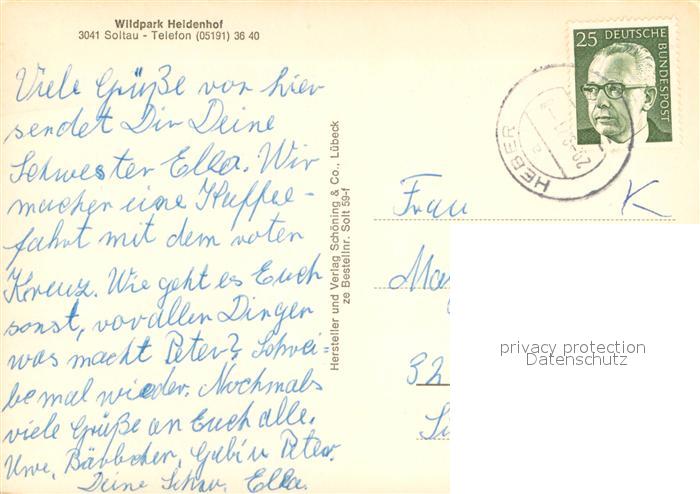 Wildpark Heidenhof
3041 Soltau - Telefon (05191) 36 40
Viele Grüße von hier
sendet Dir Deine
Schwester Ella. Wir
machen eine Kaffee-
fahrt mit dem roten
Kreuz. Wie geht es Euch
sonst, vor allen Dingen
was macht Peter? Schrei-
be mal wieder. Nochmals
viele Grüße an Euch alle.
Uwe, Bärbchen, Gabi u Peter.
Deine Schw. Ella.
Hersteller und Verlag Schöning & Co., Lübeck
ze Bestellnr. Solt 59-f
25 DEUTSCHE
BUNDESPOST
HEBER
Frau K
32
privacy protection
Datenschutz